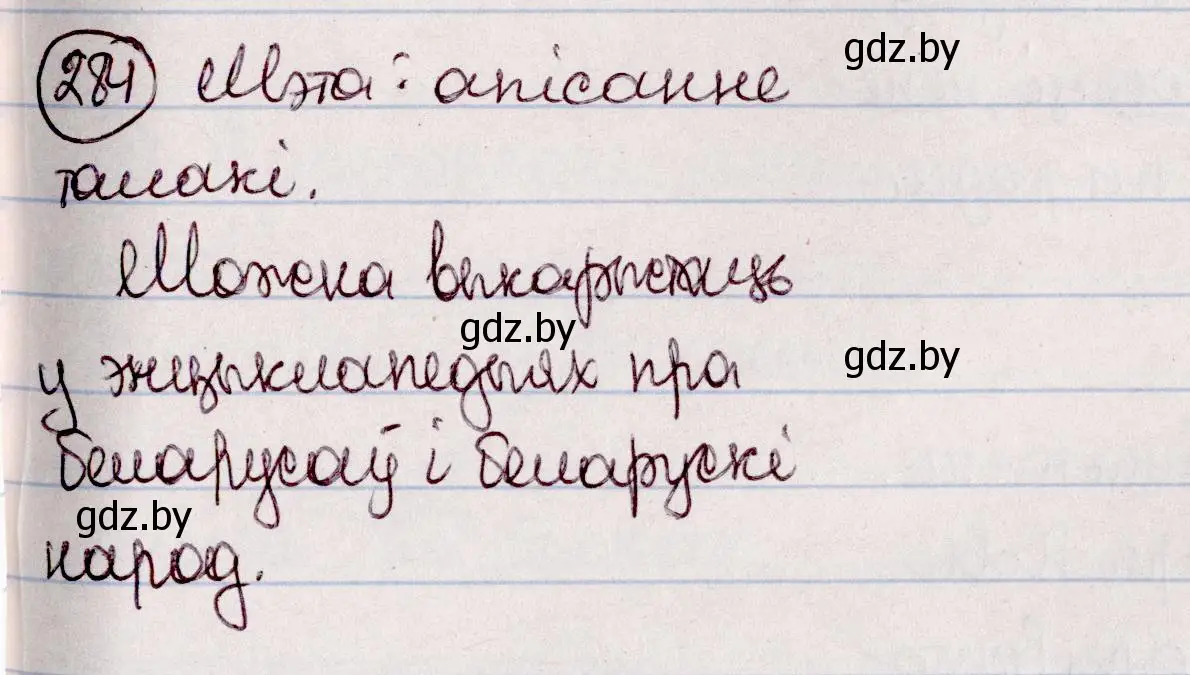 284 Мэта: апісанне
gdz.by
талакі.
Можна выкарыстаць
gdz.by
у энцыклапедыях пра
gdz.by
беларусаў і беларускі
gdz.by
народ.